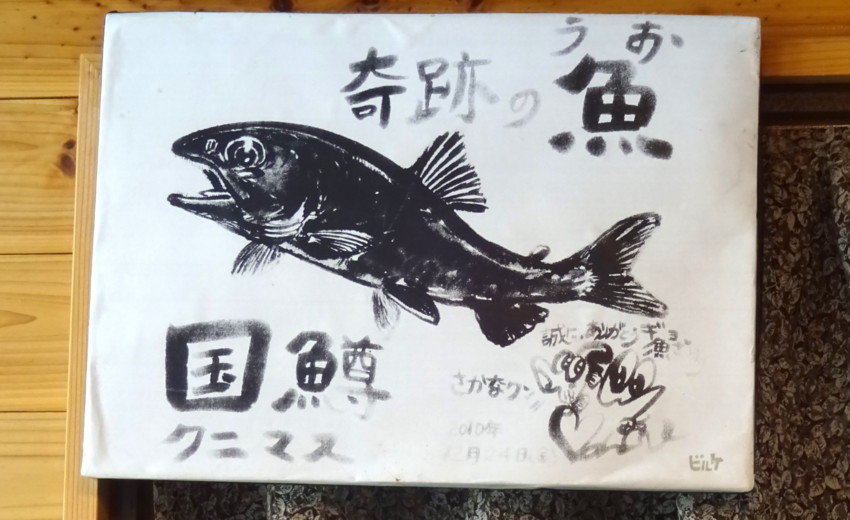 うお
奇跡の魚
国鱒
クニマス
誠に、ありがとうギョ
さかなクン
2010年
12月24日
ビルケ